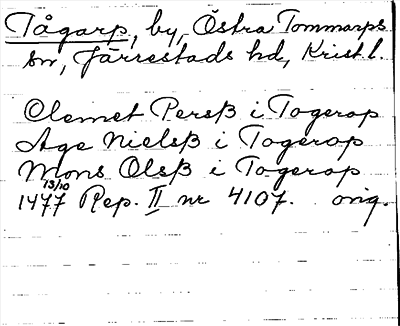 Tågarp, by, Östra Tommarps
sn, Järrestads hd, Krist l.
Clemet Persß i Togerop
Age Nielsß i Togerop
Mons Olsß i Togerop
13/10
1477 Rep. II nr 4107. orig.